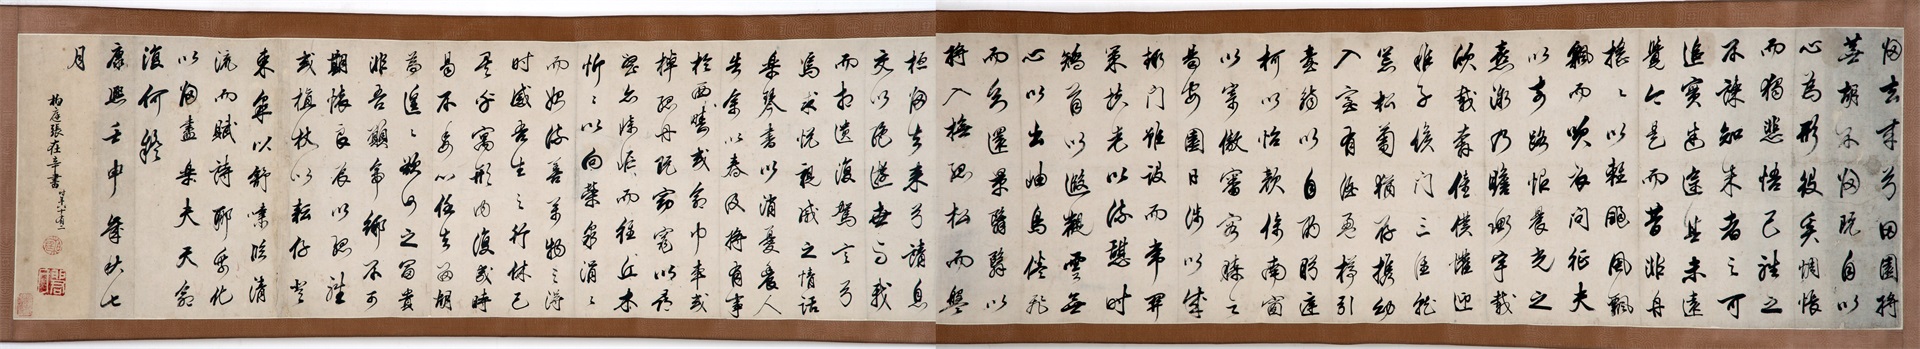 歸去来兮田園將
蕪胡不歸既自以
心為形役奚惆悵
而獨悲悟已往之
不諫知来者之可
追實迷途其未遠
覺今是而昔非舟
搖〻以輕颺風飄
飄而吹衣問征夫
以前路恨晨光之
熹微乃瞻衡宇載
欣載奔僮僕懽迎
稚子候門三徑就
荒松菊猶存攜幼
入室有酒盈樽引
壺觴以自酌眄庭
柯以怡顏倚南窗
以寄傲審容膝之
易安園日涉以成
趣門雖設而常關
策扶老以流憩時
矯首以遐觀雲無
心以出岫鳥倦飛
而知還景翳翳以
將入撫孤松而盤
桓歸去来兮請息
交以絕遊世與我
而相遺復駕言兮
焉求悅親戚之情話
樂琴書以消憂農人
告余以春及將有事
於西疇或命巾車或
棹孤舟既窈窕以尋
壑亦崎嶇而經丘木
欣〻以向榮泉涓〻
而始流善萬物之得
時感吾生之行休已
矣乎寓形内復幾時
曷不委心任去留胡
為遑〻欲何之富貴
非吾願帝鄉不可
期懷良辰以孤往
或植杖以耘耔登
東皋以舒嘯臨清
流而賦詩聊乘化
以歸盡樂夫天命
復何疑
康熙壬申年秋七
月
柏庭張在辛書